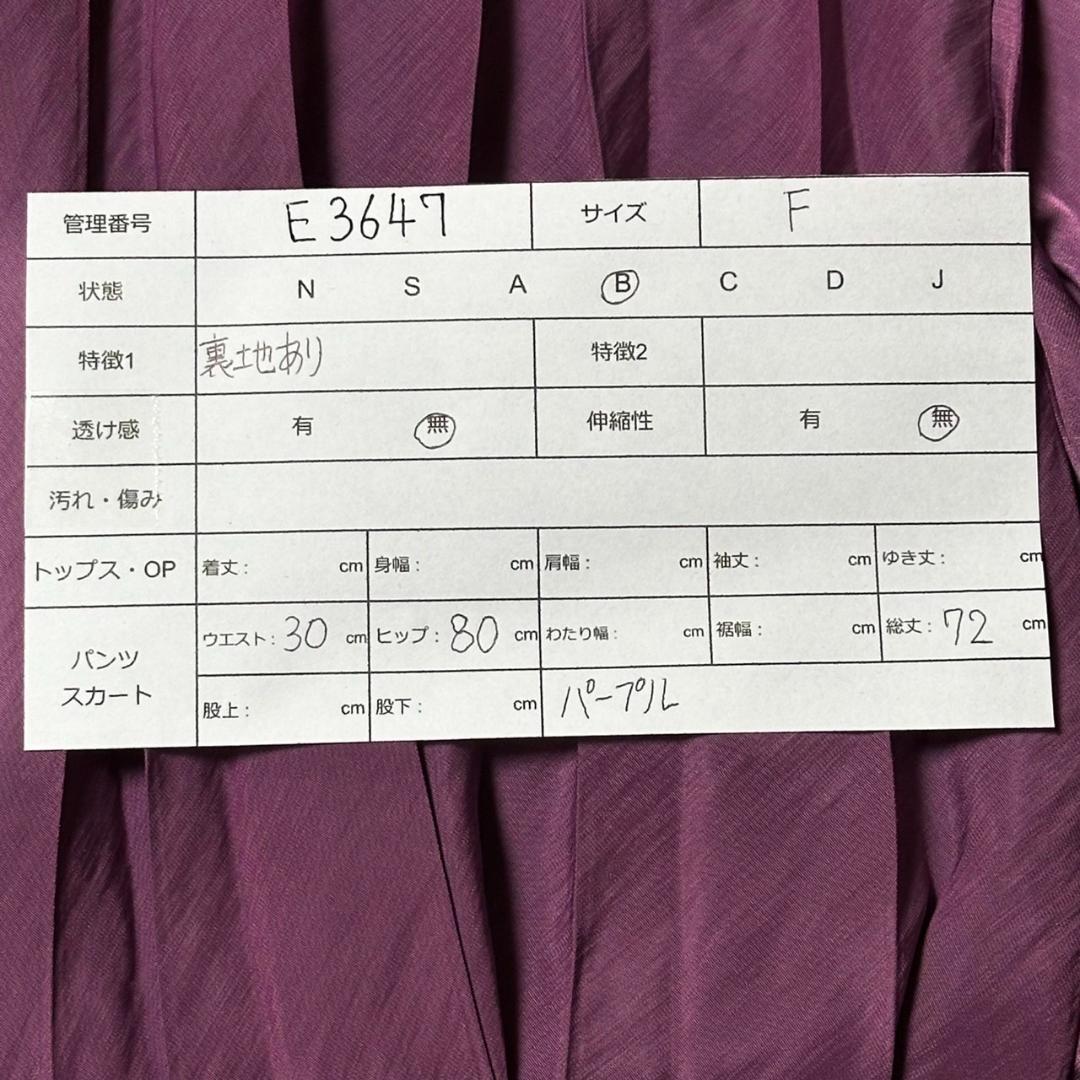 管理番号 E3647 サイズ F
状態 N S A B C D J
特徴1 裏地あり 特徴2
透け感 有 無 伸縮性 有 無
汚れ・傷み
トップス・OP 着丈: cm 身幅: cm 肩幅: cm 袖丈: cm ゆき丈: cm
パンツ スカート ウエスト: 30 cm ヒップ: 80 cm わたり幅: cm 裾幅: cm 総丈: 72 cm
股上: cm 股下: cm パープル